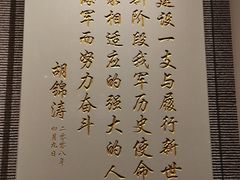 建设一支与履行新世
阶段我军历史使命
求相适应的强大的人
海军而努力奋斗
胡锦涛
二〇〇八年
四月九日